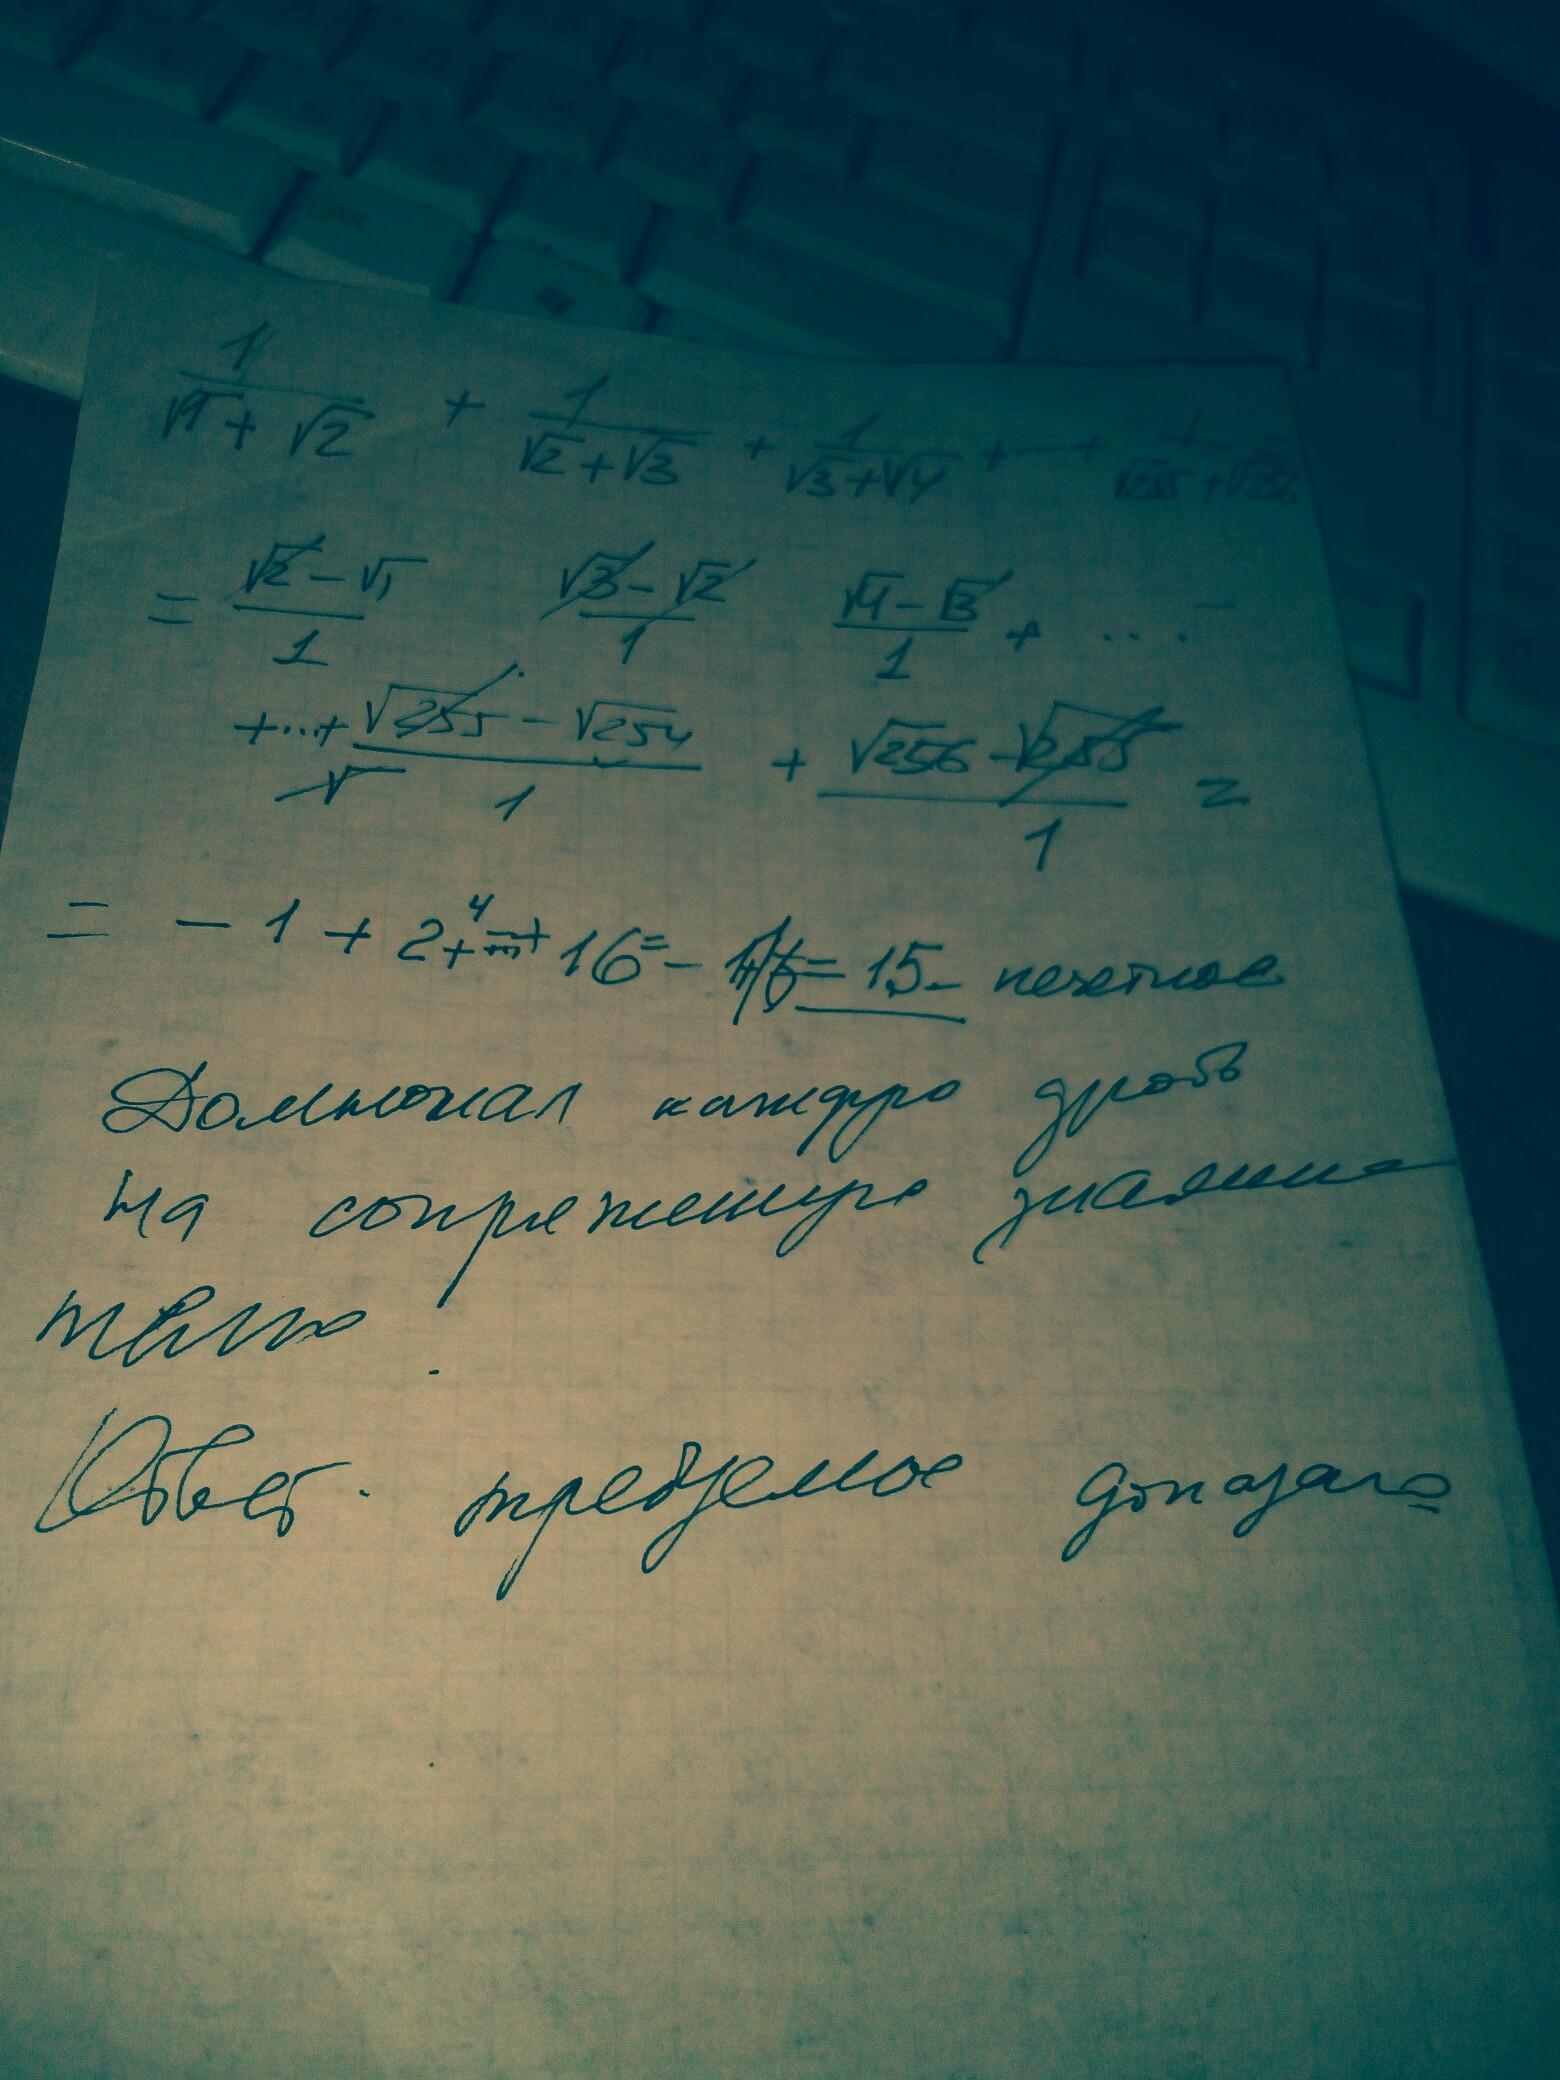 1/(√1 + √2) + 1/(√2 + √3) + 1/(√3 + √4) + ... + 1/(√255 + √256)
= (√2 - √1)/1 (√3 - √2)/1 (√4 - √3)/1 + ... -
+ ... + (√255 - √254)/1 + (√256 - √255)/1 =
= - 1 + 2 + 4 + 16 = - = 15 - нечетное
Домножил каждую дробь
на сопряженную знамена
телю.
Ответ. требуемое доказано